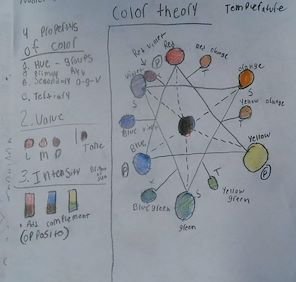 Color theory
Temperature
4 Propertys
of color
A. Hue - groups
Primary
Secondary o-g-v
C. Tertiary
2. Value
L M D
Tone
3. Intensity
Add complement
(opposite)
Red violet
Red
Red orange
orange
Yellow orange
Yellow
P
Yellow
green
T
S
green
Blue green
Blue
P
Blue
violet
S
S
P